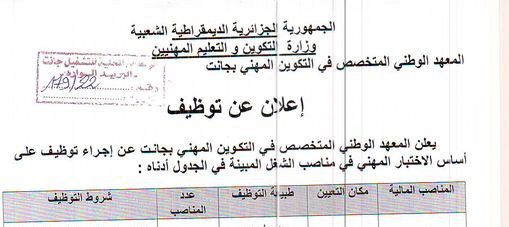 الجمهورية الجزائرية الديمقراطية الشعبية
وزارة التكوين و التعليم المهنيين
المعهد الوطني المتخصص في التكوين المهني بجانت
المحلية للتشغيل جانت
البريد الوارد
179/22
إعلان عن توظيف
يعلن المعهد الوطني المتخصص في التكوين المهني بجانت عن إجراء توظيف على
أساس الاختبار المهني في مناصب الشغل المبينة في الجدول أدناه :
المناصب المالية مكان التعيين طبيعة التوظيف عدد المناصب شروط التوظيف